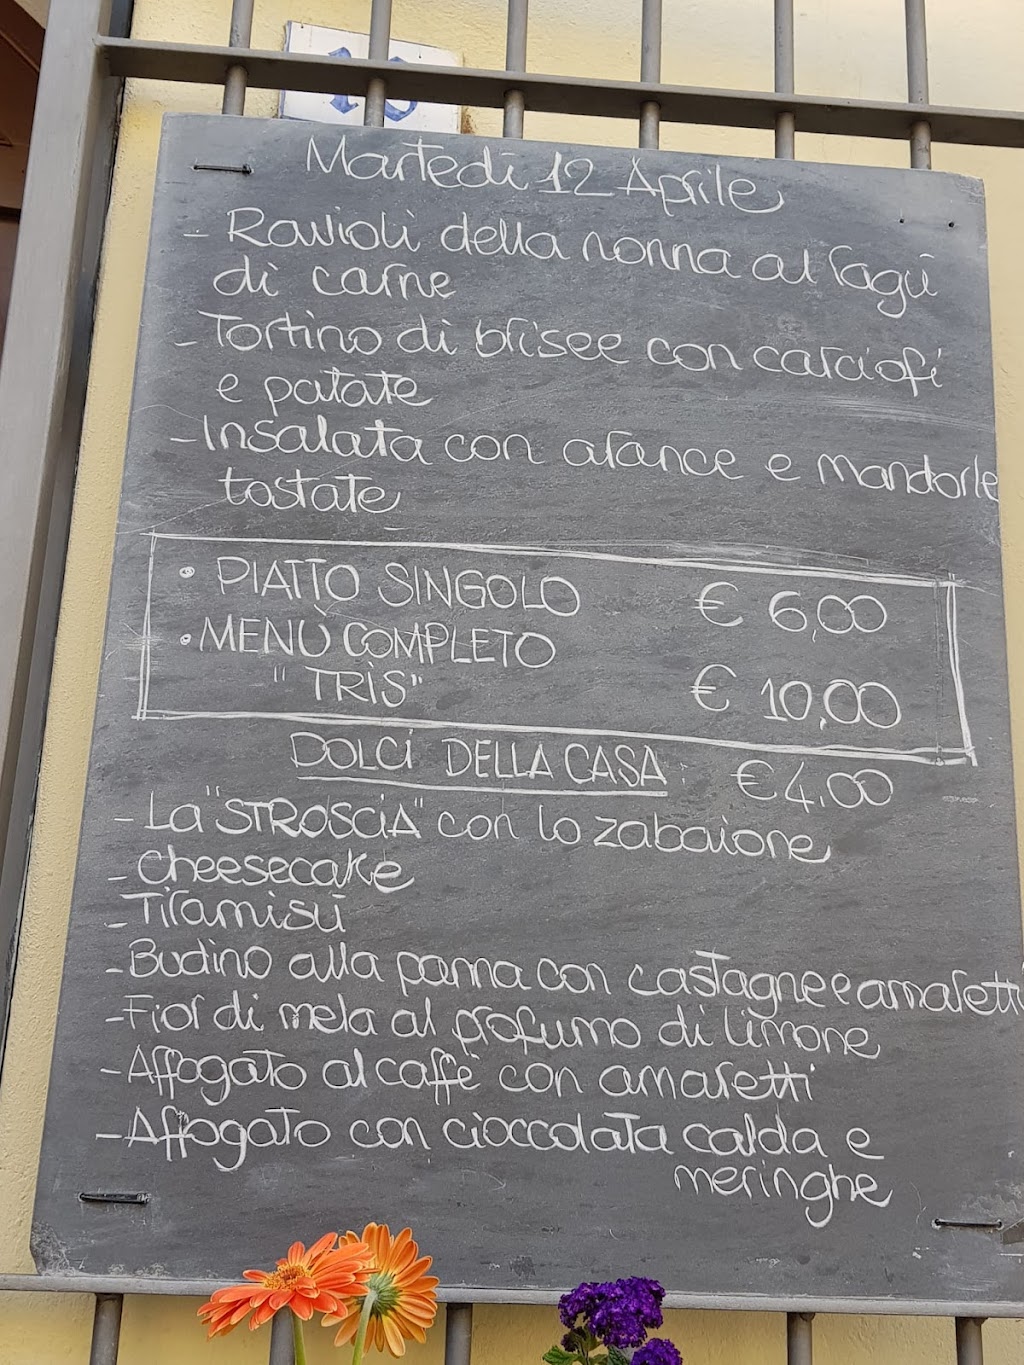 Martedì 12 Aprile
- Ravioli della nonna al ragù
di carne
- Tortino di brisee con carciofi
e patate
- Insalata con arance e mandorle
tostate
• PIATTO SINGOLO € 6,00
• MENÙ COMPLETO
"TRÌS" € 10,00
DOLCI DELLA CASA € 4,00
- La "STROSCIA" con lo zabaione
- Cheesecake
- Tiramisù
- Budino alla panna con castagne e amaretti
- Fior di mela al profumo di limone
- Affogato al caffè con amaretti
- Affogato con cioccolata calda e
meringhe